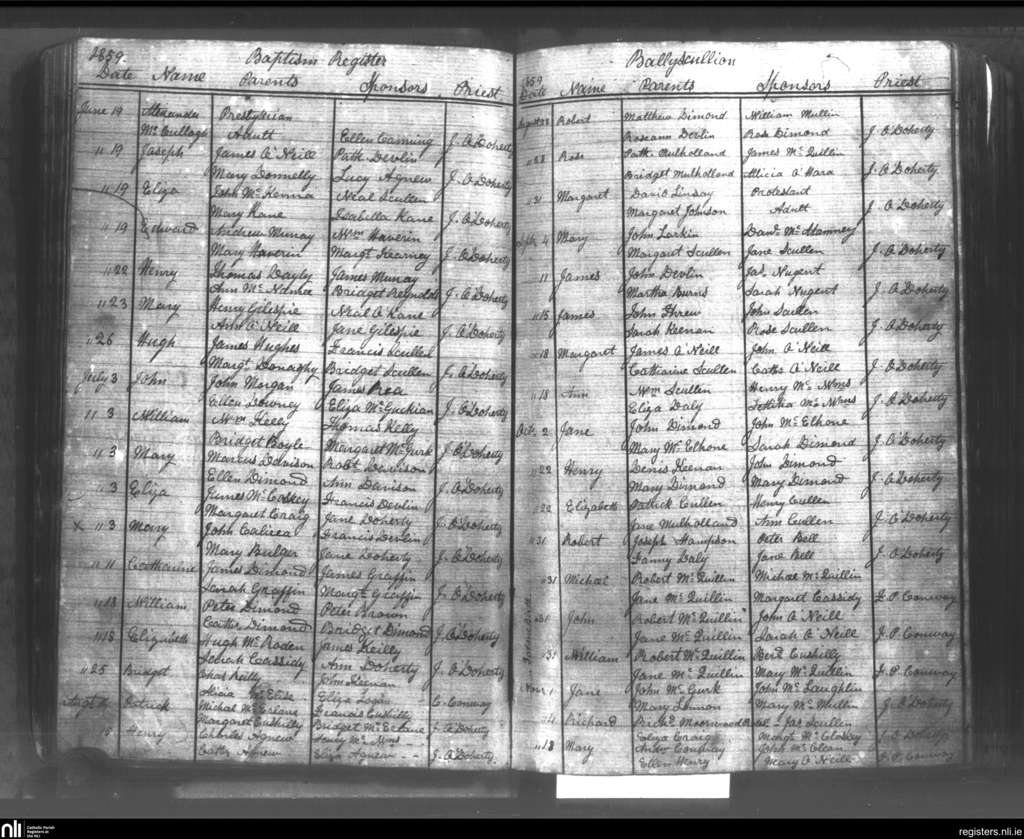 1859. Baptism Register
Date Name Parents Sponsors Priest
June 19 Alexander Presbyterian
McCullagh Adult Ellen Canning J. O'Doherty
" 19 Joseph James O'Neill Patk Devlin
Mary Donnelly Lucy Agnew J. O'Doherty
" 19 Eliza John McKenna Neal Scullen
Mary Kane Isabella Kane J. O'Doherty
" 19 Edward Andrew Murray Wm Haverin
Mary Haverin Margt Kearney J. O'Doherty
" 22 Henry Thomas Dayly James Murray
Ann McNamee Bridget Reynolds J. O'Doherty
" 23 Mary Henry Gilespie Neal O'Kane
Ann O'Neill Jane Gilespie J. O'Doherty
" 26 Hugh James Hughes Francis Scullen
Margt Donaghy Bridget Scullen J. O'Doherty
July 3 John John Morgan James Rea
Ellen Downey Eliza McGuckian J. O'Doherty
" 3 William Wm Kelly Thomas Kelly
Bridget Boyle Margaret McGurk J. O'Doherty
" 3 Mary Marcus Davison Robt Davison
Ellen Dimond Ann Davison J. O'Doherty
" 3 Eliza James McCoskey Francis Devlin
Margaret Craig Jane Doherty J. O'Doherty
x " 3 Mary John Francis Devlin
Mary Bulger Jane Doherty J. O'Doherty
" 11 Catharine James Dimond James Graffin
Sarah Graffin Margt Graffin J. O'Doherty
" 13 William Peter Dimond Peter Brown
Cathr Dimond Bridget Dimond J. O'Doherty
" 18 Elizabeth Hugh McRoden James Reilly
Sarah Cassidy Ann Doherty J. O'Doherty
" 25 Bridget Chas Reilly John Keenan
Alicia Eliza Logan C. Conway
Patrick Michal McErlane Francis Cushilly
Margaret Cushilly Bridget McErlane J. O'Doherty
15 Henry Charles Agnew Henry McWms
Cathr Agnew Eliza Agnew J. O'Doherty
Ballyscullion
1859
Date Name Parents Sponsors Priest
August 28 Robert Matthew Dimond William Mullin
Roseann Devlin Rose Dimond J. O'Doherty
" 28 Rose Patk. Mulholland James McQuillin
Bridget Mulholland Alicia O'Hara J. O'Doherty
" 31 Margaret David Linsay Protestant
Margaret Johnson Adult J. O'Doherty
Sept. 4 Mary John Larkin Danl McAtamney
Margaret Scullen Jane Scullen J. O'Doherty
11 James John Devlin Jas. Nugent
Martha Burns Sarah Nugent J. O'Doherty
" 15 James John Threw John Scullen
Sarah Keenan Rose Scullen J. O'Doherty
" 18 Margaret James O'Neill John O'Neill
Catharine Scullen Cathr O'Neill J. O'Doherty
" 18 Ann Wm Scullen Henry McWms
Eliza Daly Letitia McWms J. O'Doherty
Oct. 2 Jane John Dimond John McElhone
Mary McElhone Sarah Dimond J. O'Doherty
" 22 Henry Denis Keenan John Dimond
Mary Dimond Mary Dimond J. O'Doherty
" 22 Elizabeth Patrick Cullen Henry Cullen
Jane Mulholland Ann Cullen J. O'Doherty
" 31 Robert Joseph Hampson Peter Bell
Fanny Daly Jane Bell J. O'Doherty
" 31 Michal Robert McQuillin Michael McQuillin
Jane McQuillin Margaret Cassidy J. P. Conway
" 31 John Robert McQuillin John O'Neill
Jane McQuillin Sarah O'Neill J. P. Conway
" 31 William Robert McQuillin Bernd Cushilly
Jane McQuillin Mary McQuillin J. P. Conway
Novr 1 Jane John McGurk John McLaughlin
Mary Lennon Mary McMullin J. O'Doherty
" 4 Richard Richd Moorwood Jas Scullen
Eliza Craig Margt McCloskey J. O'Doherty
" 13 Mary Andw Conway John McClean
Ellen Henry Mary O'Neill J. P. Conway
nli
Catholic Parish
Registers at
the NLI
registers.nli.ie